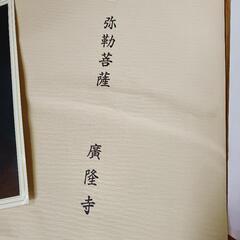 弥勒菩薩
廣隆寺